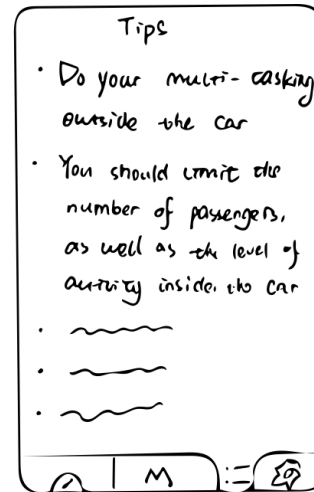 Tips
· Do your multi-tasking
outside the car
· You should limit the
number of passengers,
as well as the level of
activity inside the car
M